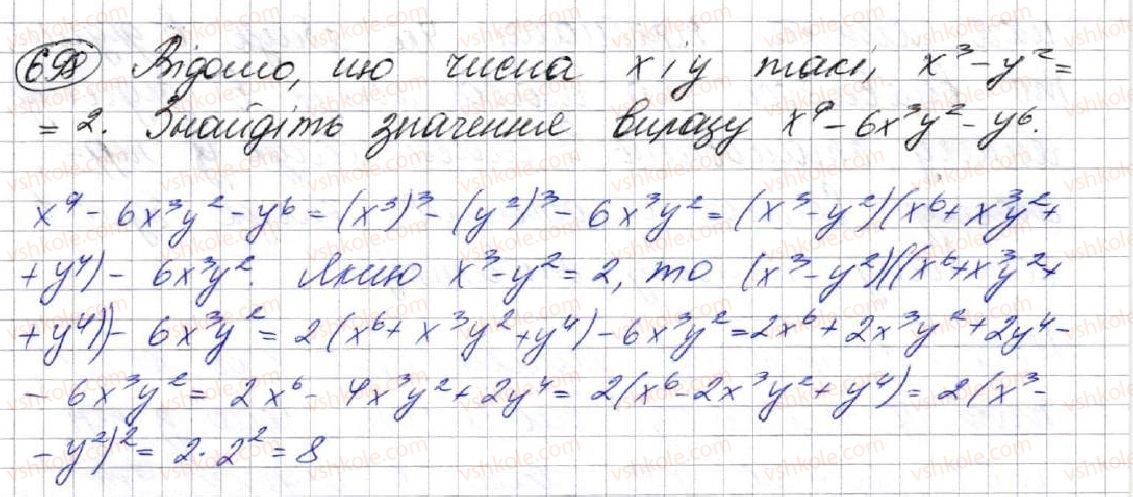 698 Відомо, що числа x і y такі, x³ - y² =
= 2. Знайдіть значення виразу x⁹ - 6x³y² - y⁶.
x⁹ - 6x³y² - y⁶ = (x³)³ - (y²)³ - 6x³y² = (x³ - y²)(x⁶ + x³y² +
+ y⁴) - 6x³y². Якщо x³ - y² = 2, то (x³ - y²)((x⁶ + x³y² +
+ y⁴)) - 6x³y² = 2(x⁶ + x³y² + y⁴) - 6x³y² = 2x⁶ + 2x³y² + 2y⁴ -
- 6x³y² = 2x⁶ - 4x³y² + 2y⁴ = 2(x⁶ - 2x³y² + y⁴) = 2(x³ -
- y²)² = 2 · 2² = 8